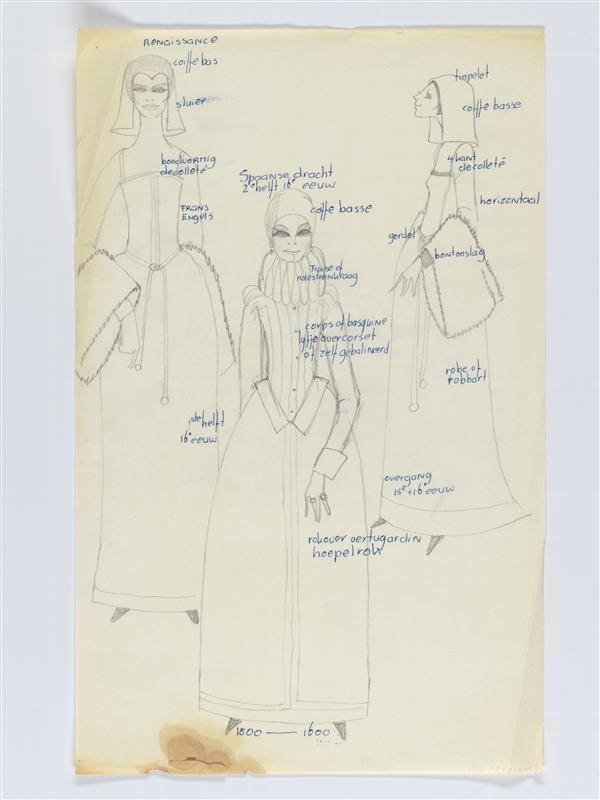 Renaissance
coiffe bas
sluier
bootvormig
decolleté
Frans
Engels
1ste helft
16e eeuw
Spaanse dracht
2e helft 16e eeuw
coiffe basse
Fraise of
molesteenkraag
corps of basquine
lijfje over corset
of zelf gebalineerd
rok over vertugardin
hoepelrok
1500 — 1600
timpelet
coiffe basse
4kant
decolleté
horizontaal
gordel
bontomslag
robe of
robbart
overgang
15e + 16e eeuw